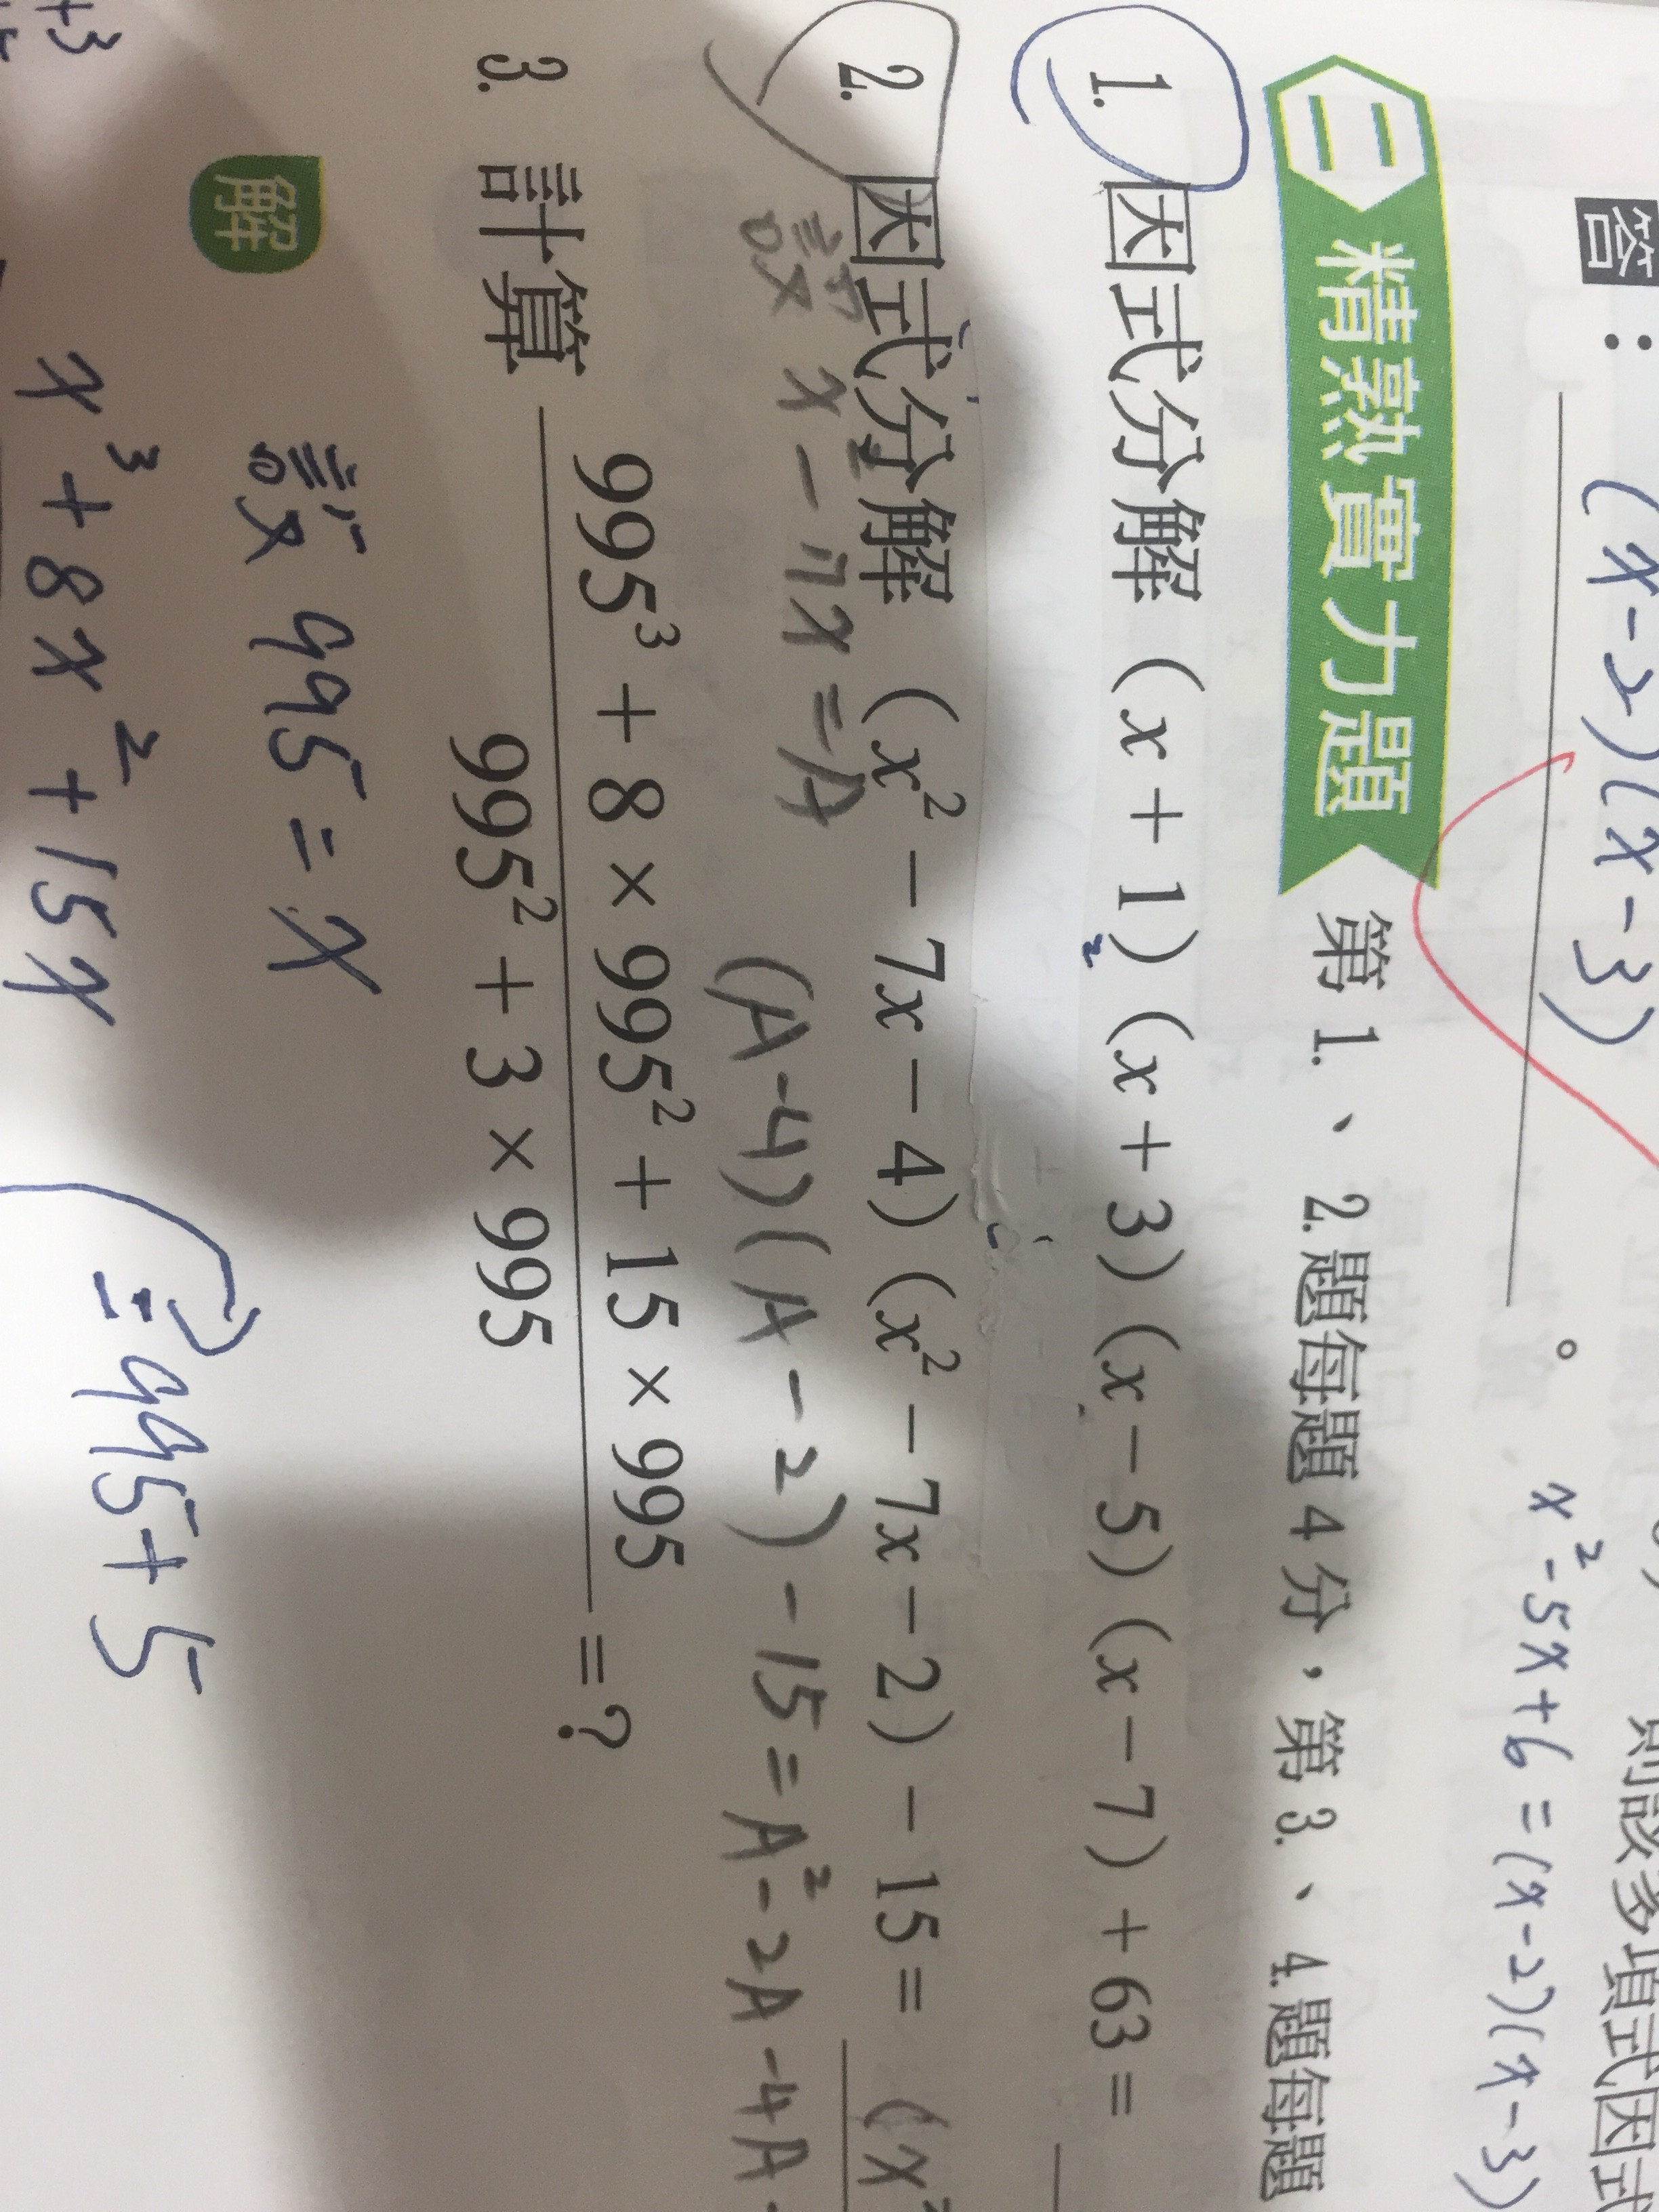 則該多項式因式
答：(x-2)(x-3)。 x²-5x+6=(x-2)(x-3)
三 精熟實力題 第 1.、2.題每題 4 分，第 3.、4.題每題
1. 因式分解 (x+1)(x+3)(x-5)(x-7)+63=
2. 因式分解 (x²-7x-4)(x²-7x-2)-15= (x²
設 x²-7x=A (A-4)(A-2)-15=A²-2A-4A
3. 計算 (995³+8×995²+15×995)/(995²+3×995)=?
解 設 995=x
x³+8x²+15x =995+5
+3